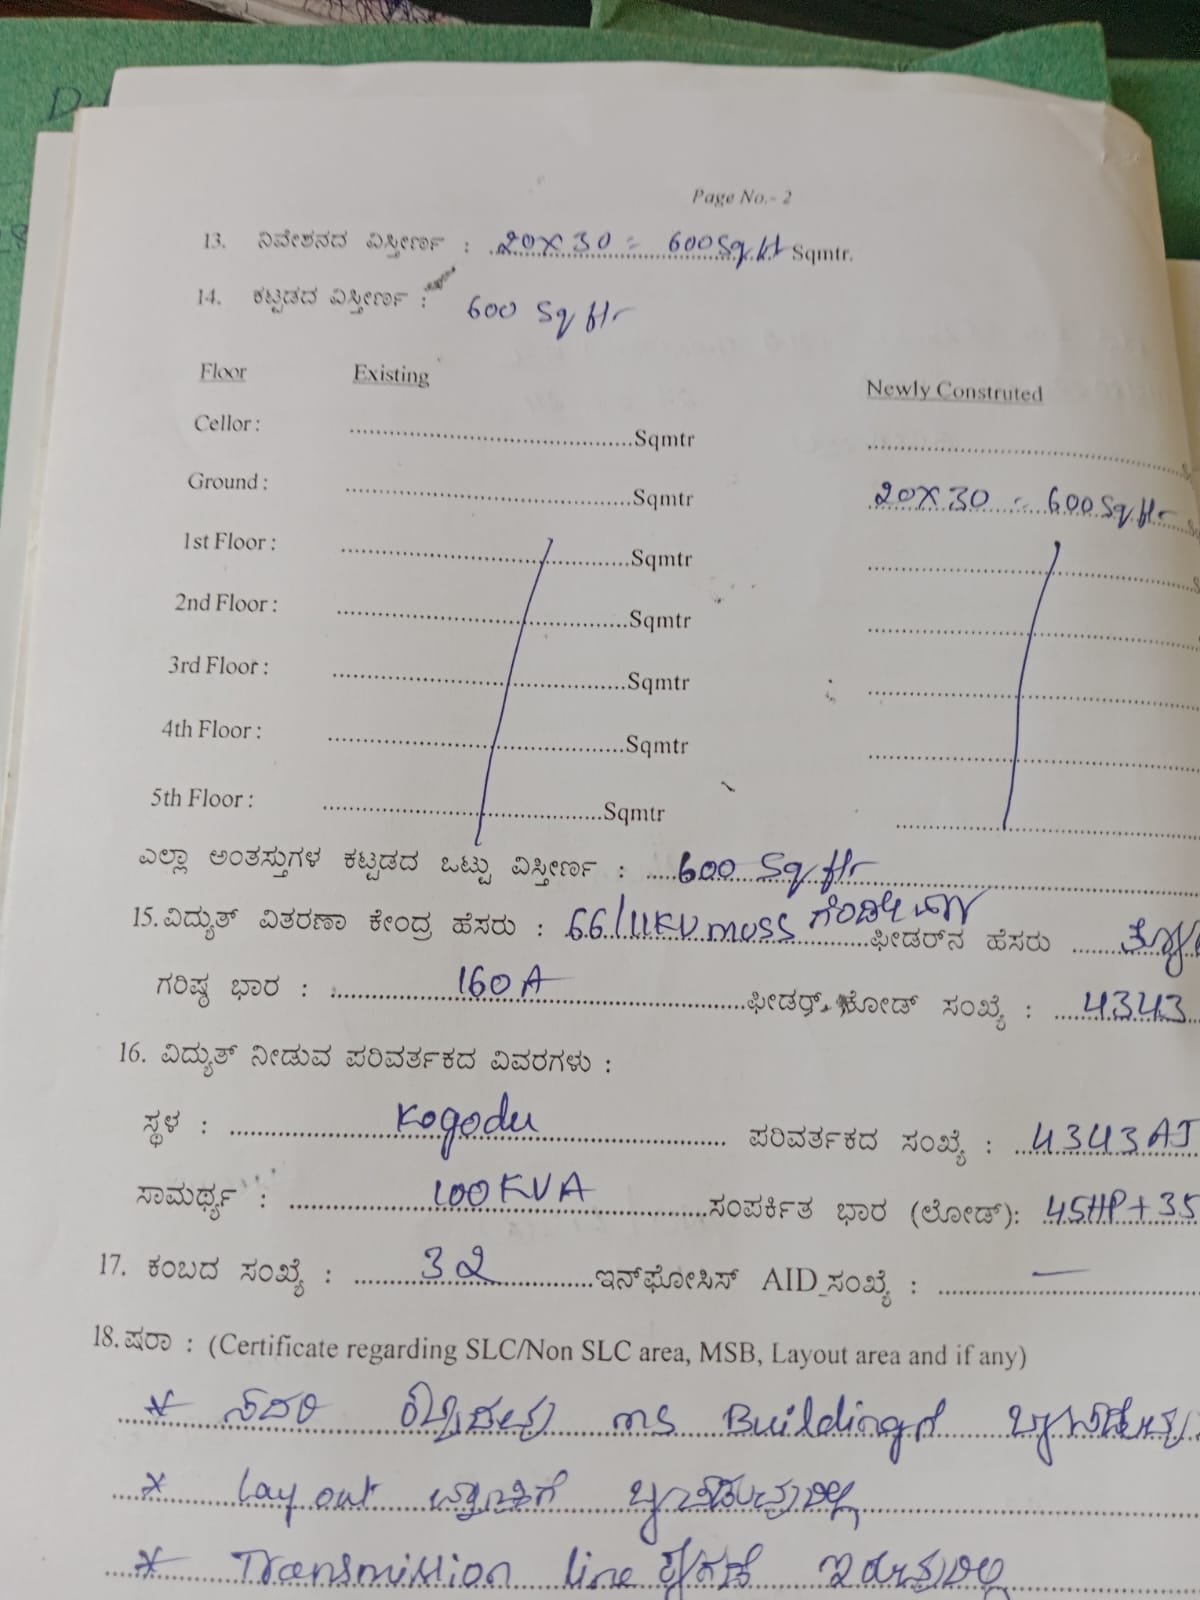 Page No.- 2
13. ನಿವೇಶನದ ವಿಸ್ತೀರ್ಣ : 20X30 = 600 Sq.ft Sqmtr.
14. ಕಟ್ಟಡದ ವಿಸ್ತೀರ್ಣ : 600 Sq ftr
Floor Existing Newly Construted
Cellor : Sqmtr
Ground : Sqmtr 20X30 = 600 Sq ftr
1st Floor : Sqmtr
2nd Floor : Sqmtr
3rd Floor : Sqmtr
4th Floor : Sqmtr
5th Floor : Sqmtr
ಎಲ್ಲಾ ಅಂತಸ್ತುಗಳ ಕಟ್ಟಡದ ಒಟ್ಟು ವಿಸ್ತೀರ್ಣ : 600 Sq ftr
15. ವಿದ್ಯುತ್ ವಿತರಣಾ ಕೇಂದ್ರ ಹೆಸರು : 66/11KV muss ಫೀಡರ್‌ನ ಹೆಸರು
ಗರಿಷ್ಠ ಭಾರ : 160 A ಫೀಡರ್, ಕೋಡ್ ಸಂಖ್ಯೆ : 4343
16. ವಿದ್ಯುತ್ ನೀಡುವ ಪರಿವರ್ತಕದ ವಿವರಗಳು :
ಸ್ಥಳ : Kogodu ಪರಿವರ್ತಕದ ಸಂಖ್ಯೆ : 4343 AJ
ಸಾಮರ್ಥ್ಯ : 100 KVA ಸಂಪರ್ಕಿತ ಭಾರ (ಲೋಡ್): 45HP + 35
17. ಕಂಬದ ಸಂಖ್ಯೆ : 32 ಇನ್‌ಫೋಸಿಸ್ AID ಸಂಖ್ಯೆ : —
18. ಷರಾ : (Certificate regarding SLC/Non SLC area, MSB, Layout area and if any)
* ಸದರಿ ms Buildingಗೆ
* Layout ವ್ಯಾಪ್ತಿಗೆ ಬರುವುದಿಲ್ಲ
* Transmission line ಇರುವುದಿಲ್ಲ